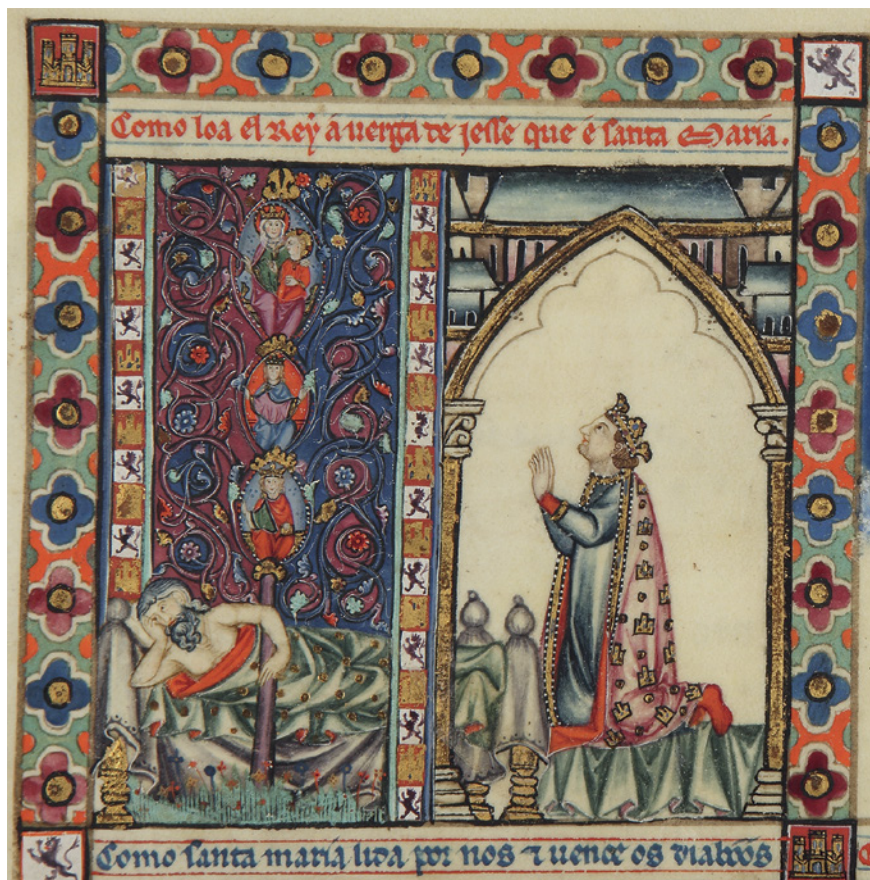 Como loa el Rey a uerga de jesse que é santa Maria.
Como santa maria lida por nos ⁊ uence os diabóós